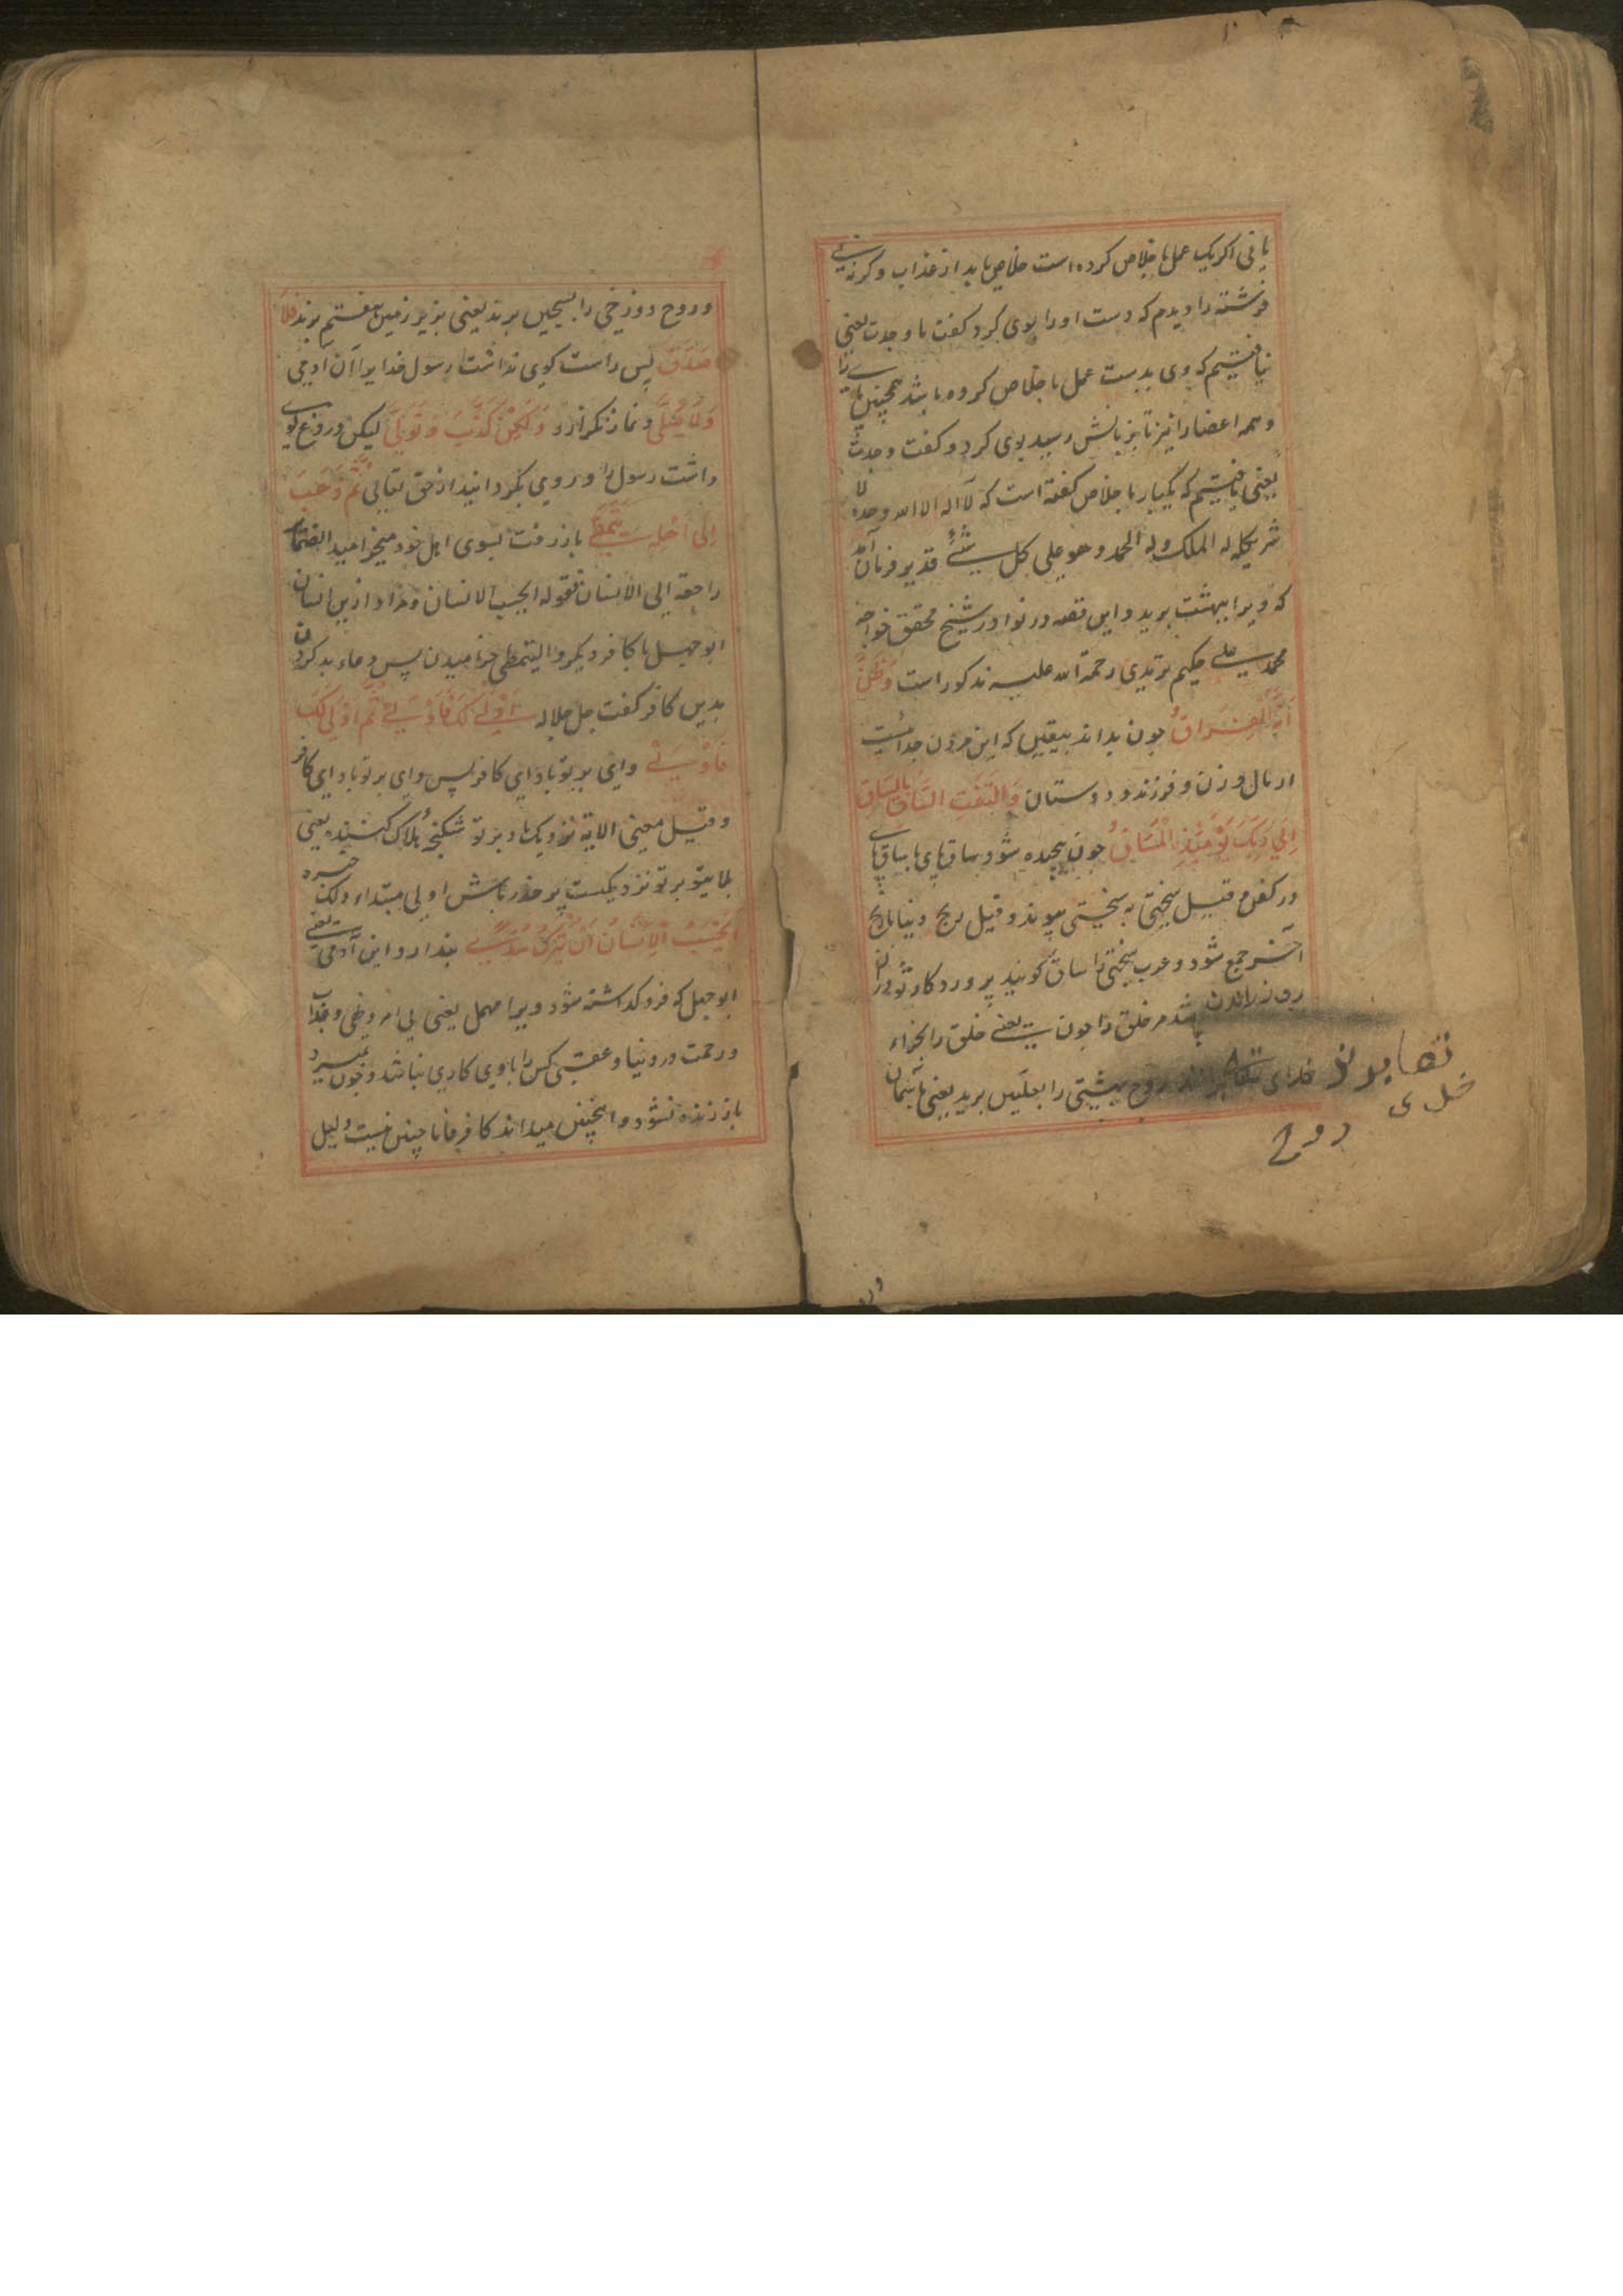 یابی اگر یک عمل باخلاص کرده است خلاص یابد از عذاب وگرنه نی
فرشته را دیدم که دست او را بوی کرد گفت ما وجدت یعنی
نیافتیم که وی بدست عمل باخلاص کرده باشد همچنین پای را
و همه اعضا را نیز تا بزبانش رسید بوی کرد و گفت وجدت
یعنی یافتیم که یکبار باخلاص گفته است که لا اله الا الله وحده لا
شریک له له الملک وله الحمد وهو علی کل شیء قدیر فرمان آمد
که ویرا ببهشت برید و این قصه در نوادر شیخ محقق خواجه
محمد علی حکیم ترمذی رحمة الله علیه مذکور است وَظَنَّ
أَنَّهُ الْفِرَاقُ چون بداند بیقین که این مردن جدائیست
از مال و زن و فرزند و دوستان وَالْتَفَّتِ السَّاقُ بِالسَّاقِ
إِلَى رَبِّكَ يَوْمَئِذٍ الْمَسَاقُ چون پیچیده شود ساق‌های با ساق‌های
در کفن و قیل سختی به سختی پیوندد و قیل رنج دنیا با رنج
آخر جمع شود و عرب سختی را ساق گویند پروردگار تو در آن
روز راندن باشد مر خلق را چون یعنی خلق را بجزاء
خدای تعالی روح بهشتی را بعلیین برید یعنی بآسمان
خدای
روح
و روح دوزخی را بسجین برند یعنی بزیر زمین هفتم برند فَلَا
صَدَّقَ پس راست گوی نداشت رسول خدایرا آن آدمی
وَلَا صَلَّى و نماز نگزارد وَلَكِنْ كَذَّبَ وَتَوَلَّى لیکن دروغ گوی
داشت رسول را و روی بگردانید از حق تعالی ثُمَّ ذَهَبَ
إِلَى أَهْلِهِ يَتَمَطَّى باز رفت بسوی اهل خود میخرامید الضمائر
راجعة الی الانسان فقوله ایحسب الانسان و مراد ازین انسان
ابوجهل یا کافر دیگر و التمطی خرامیدن پس دعاء بد کردن
بدین کافر گفت جل جلاله أَوْلَى لَكَ فَأَوْلَى ثُمَّ أَوْلَى لَكَ
فَأَوْلَى وای بر تو باد ای کافر پس وای بر تو باد ای کافر
وقیل معنی الایة نزدیک باد بر تو شکنجه هلاک کننده یعنی
بر تو نزدیکست پر حذر باش اولی مبتداء و لک خبره
أَيَحْسَبُ الْإِنْسَانُ أَنْ يُتْرَكَ سُدًى پندارد این آدمی یعنی
ابوجهل که فرو گذاشته شود ویرا مهمل یعنی بی امر و نهی و عذاب
و رحمت در دنیا و عقبی کس را با وی کاری نباشد و چون بمیرد
باز زنده نشود و اینچنین میداند کافر فاما چنین نیست دلیل